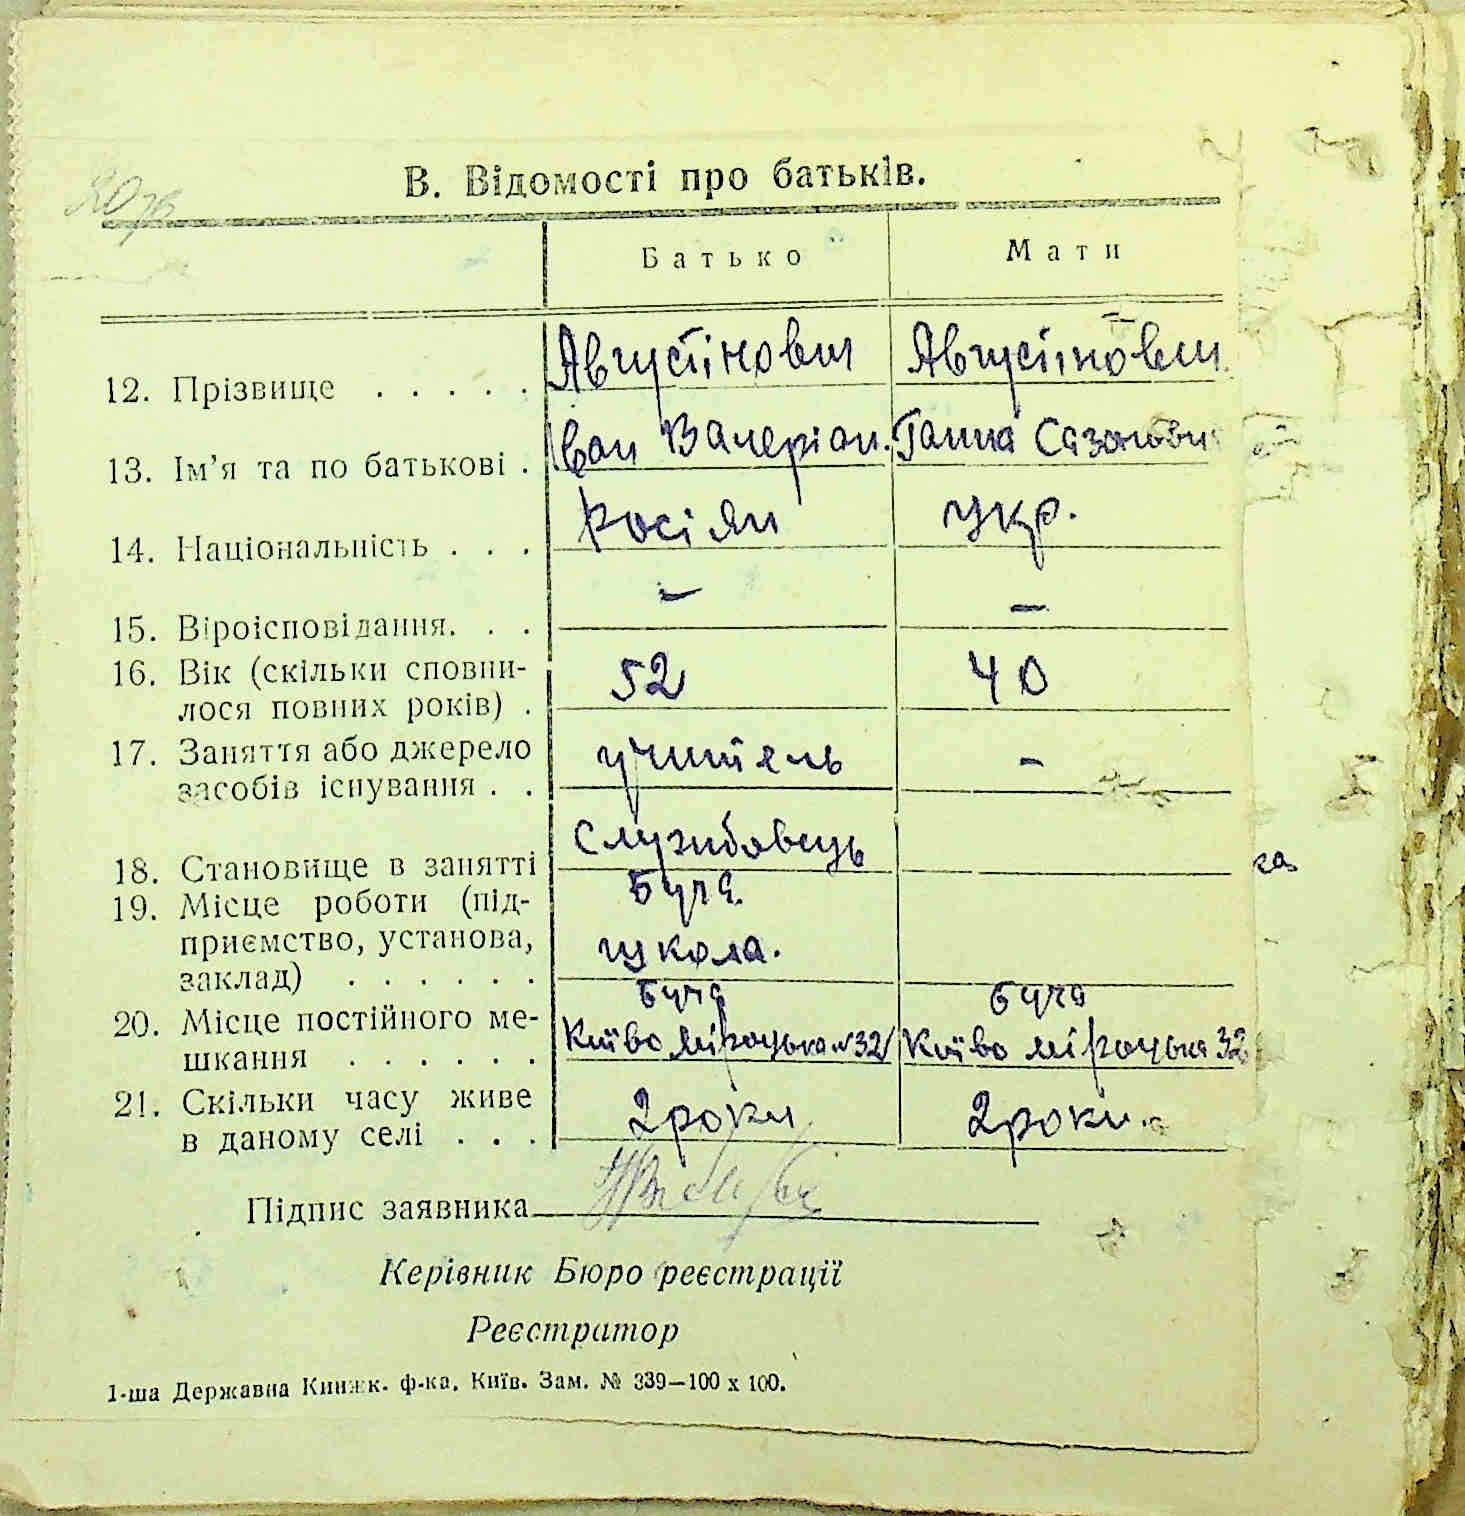 В. Відомості про батьків.
Батько Мати
12. Прізвище . . . . . Августінович Августінович
13. Ім’я та по батькові . Іван Валеріан. Ганна Сазонівн
14. Національність . . . Росіян укр.
15. Віроісповідання. . . – –
16. Вік (скільки сповни-
лося повних років) . 52 40
17. Заняття або джерело
засобів існування . . учитель -
18. Становище в занятті Службовець
19. Місце роботи (під- Буча.
приємство, установа, школа.
заклад) . . . . . .
20. Місце постійного ме- Буча Буча
шкання . . . . . . Київо Мироцька №32 Київо Мироцька 32
21. Скільки часу живе
в даному селі . . . 2 роки 2 роки.
Підпис заявника
Керівник Бюро реєстрації
Реєстратор
1-ша Державна Книжк. ф-ка. Київ. Зам. № 339—100 х 100.